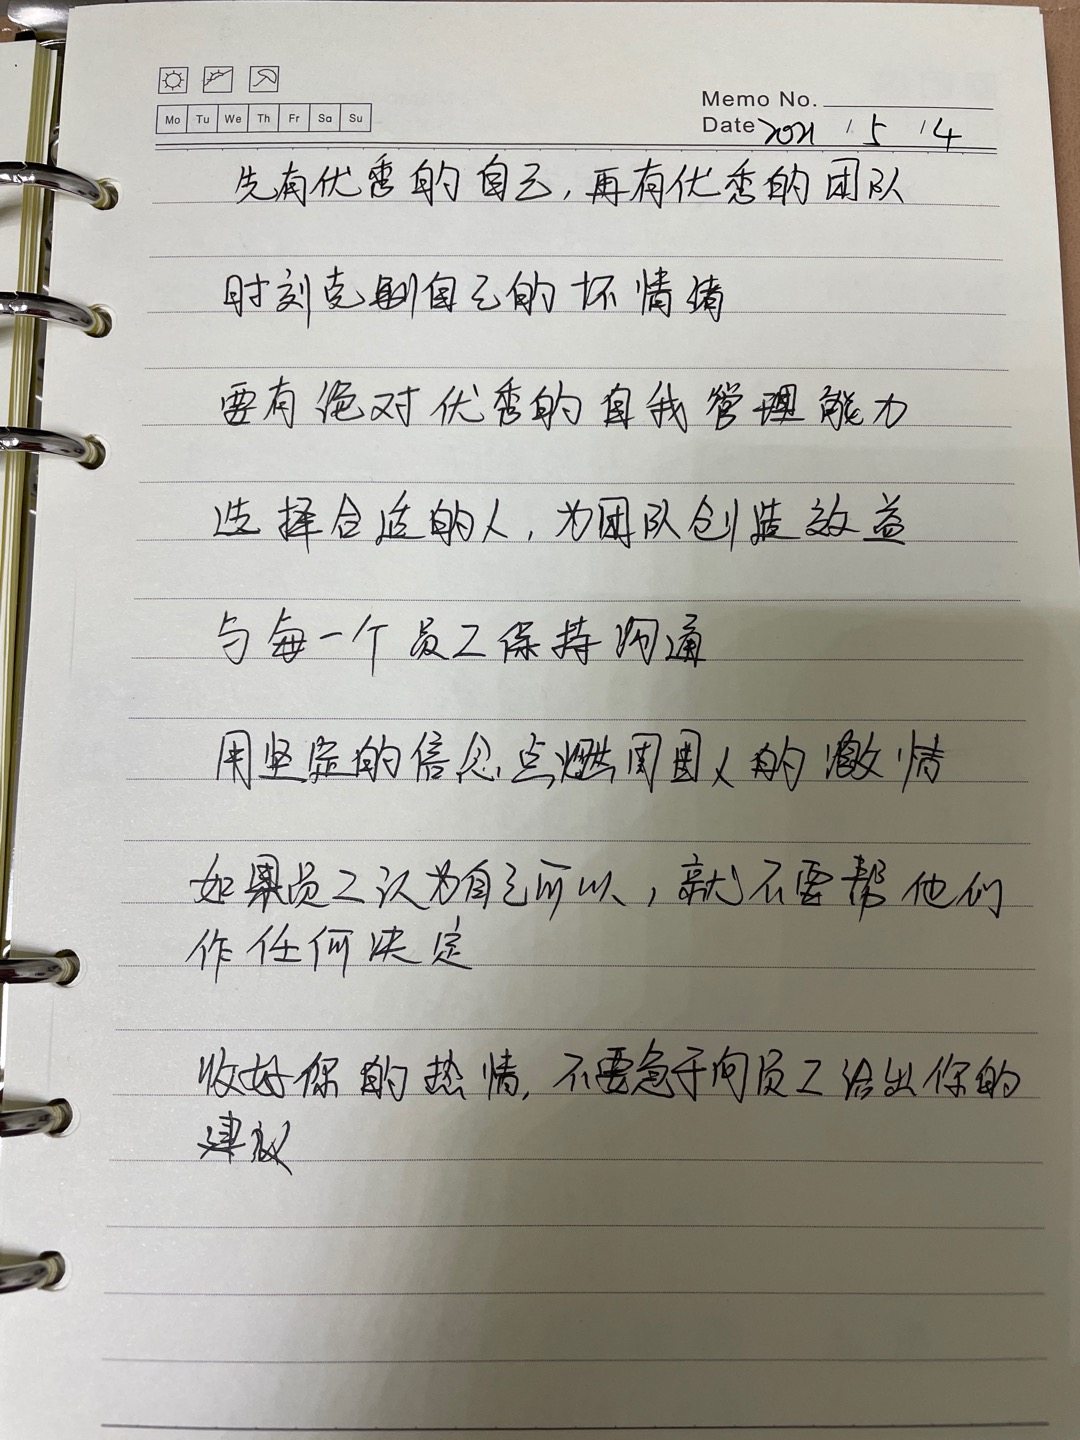 Memo No.
Mo Tu We Th Fr Sa Su
Date 2021 / 5 / 4
先有优秀的自己，再有优秀的团队
时刻克制自己的坏情绪
要有绝对优秀的自我管理能力
选择合适的人，为团队创造效益
与每一个员工保持沟通
用坚定的信念点燃周围人的激情
如果员工认为自己可以，就不要帮他们
作任何决定
收好你的热情，不要急于向员工给出你的
建议